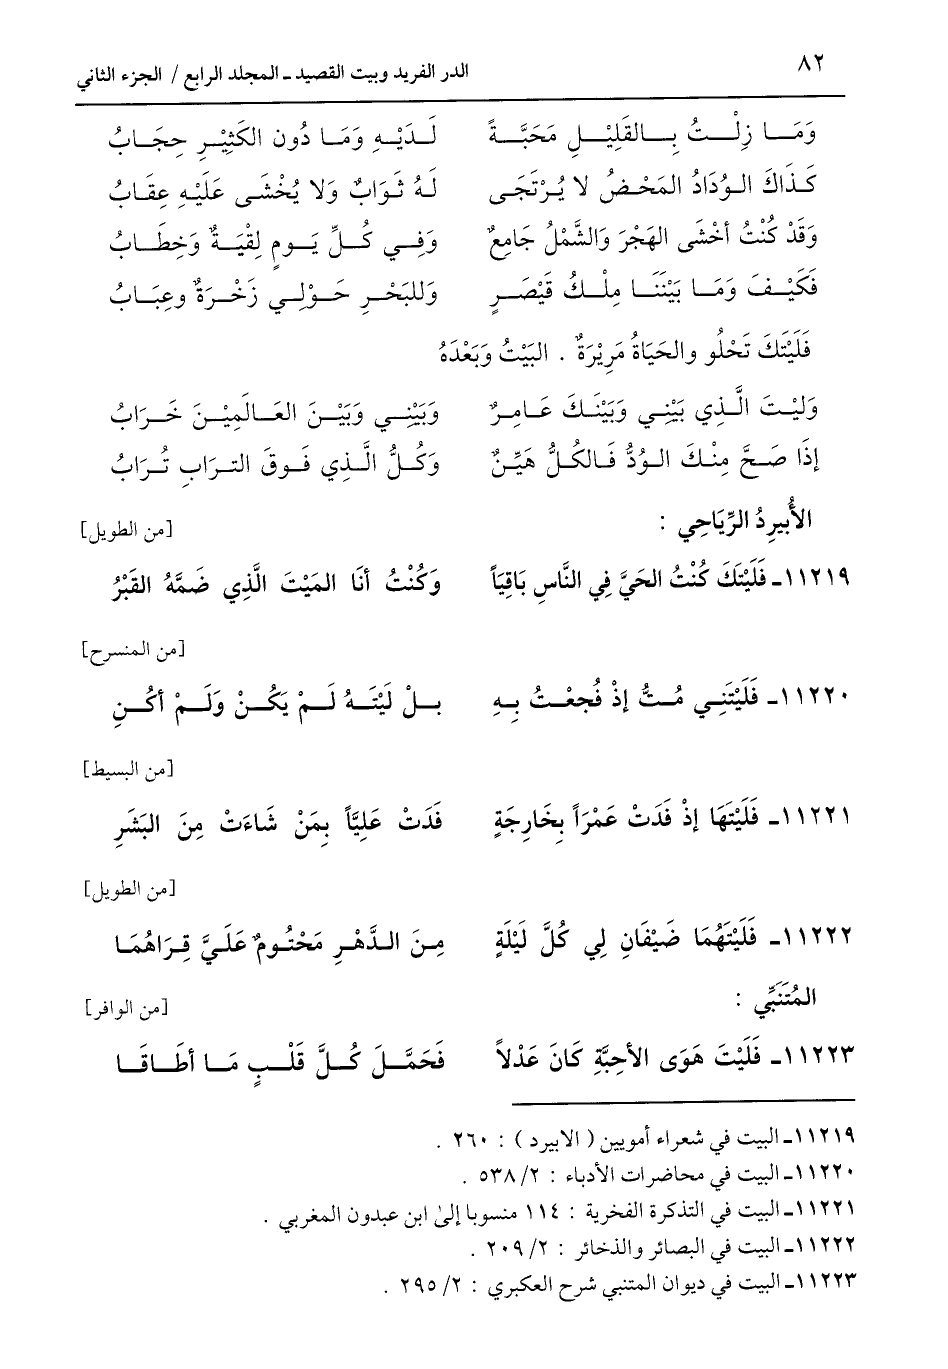 ٨٢
الدر الفريد وبيت القصيد ـ المجلد الرابع / الجزء الثاني
وَمَــا زِلْــتُ بِــالقَلِيْــلِ مَحَبَّــةً لَــدَيْــهِ وَمَـا دُون الكَثِيْــرِ حِجَــابُ
كَـذَاكَ الـوُدَادُ المَحْـضُ لا يُـرْتَجَـى لَـهُ ثَـوَابٌ وَلا يُخْشَـى عَلَيْـهِ عِقَـابُ
وَقَدْ كُنْتُ أخْشَى الهَجْرَ وَالشَّمْلُ جَامِعٌ وَفِــي كُــلِّ يَــومٍ لِقْيَــةٌ وَخِطَــابُ
فَكَيْــفَ وَمَــا بَيْنَنَــا مِلْــكُ قَيْصَــرٍ وَللبَحْــرِ حَــوْلِــي زَخْــرَةٌ وعِبَــابُ
فَلَيْتَكَ تَحْلُو والحَيَاةُ مَرِيْرَةٌ . البَيْتُ وَبَعْدَهُ
وَليْـتَ الَّـذِي بَيْنِـي وَبَيْنَـكَ عَـامِـرٌ وَبَيْنِــي وَبَيْــنَ العَــالَمِيْــنَ خَــرَابُ
إذَا صَـحَّ مِنْـكَ الـوُدُّ فَـالكُـلُّ هَيِّـنٌ وَكُــلُّ الَّــذِي فَــوقَ التــرَابِ تُــرَابُ
الأُبيرِدُ الرِّيَاحِي :
[من الطويل]
١١٢١٩ـ فَلَيْتَكَ كُنْتُ الحَيَّ فِي النَّاسِ بَاقِيَاً وَكُنْتُ أنَا المَيْتَ الَّذِي ضَمَّهُ القَبْرُ
[من المنسرح]
١١٢٢٠ـ فَلَيْتَنِـي مُـتُّ إذْ فُجعْـتُ بِـهِ بــلْ لَيْتَــهُ لَــمْ يَكُــنْ وَلَــمْ أكُــنِ
[من البسيط]
١١٢٢١ـ فَلَيْتَهَا إذْ فَدَتْ عَمْرَاً بِخَارِجَةٍ فَدَتْ عَلِيَّاً بِمَنْ شَاءَتْ مِنَ البَشَرِ
[من الطويل]
١١٢٢٢ـ فَلَيْتَهُمَا ضَيْفَانِ لِي كُلَّ لَيْلَةٍ مِـنَ الـدَّهْـرِ مَحْتُـومٌ عَلَـيَّ قِـرَاهُمَـا
المُتَنَبِّي :
[من الوافر]
١١٢٢٣ـ فَلَيْتَ هَوَى الأحِبَّةِ كَانَ عَدْلاً فَحَمَّــلَ كُــلَّ قَلْــبٍ مَـا أطَـاقَـا
١١٢١٩ـ البيت في شعراء أمويين ( الابيرد ) : ٢٦٠ .
١١٢٢٠ـ البيت في محاضرات الأدباء : ٢/ ٥٣٨ .
١١٢٢١ـ البيت في التذكرة الفخرية : ١١٤ منسوبا إلىٰ ابن عبدون المغربي .
١١٢٢٢ـ البيت في البصائر والذخائر : ٢/ ٢٠٩ .
١١٢٢٣ـ البيت في ديوان المتنبي شرح العكبري : ٢/ ٢٩٥ .